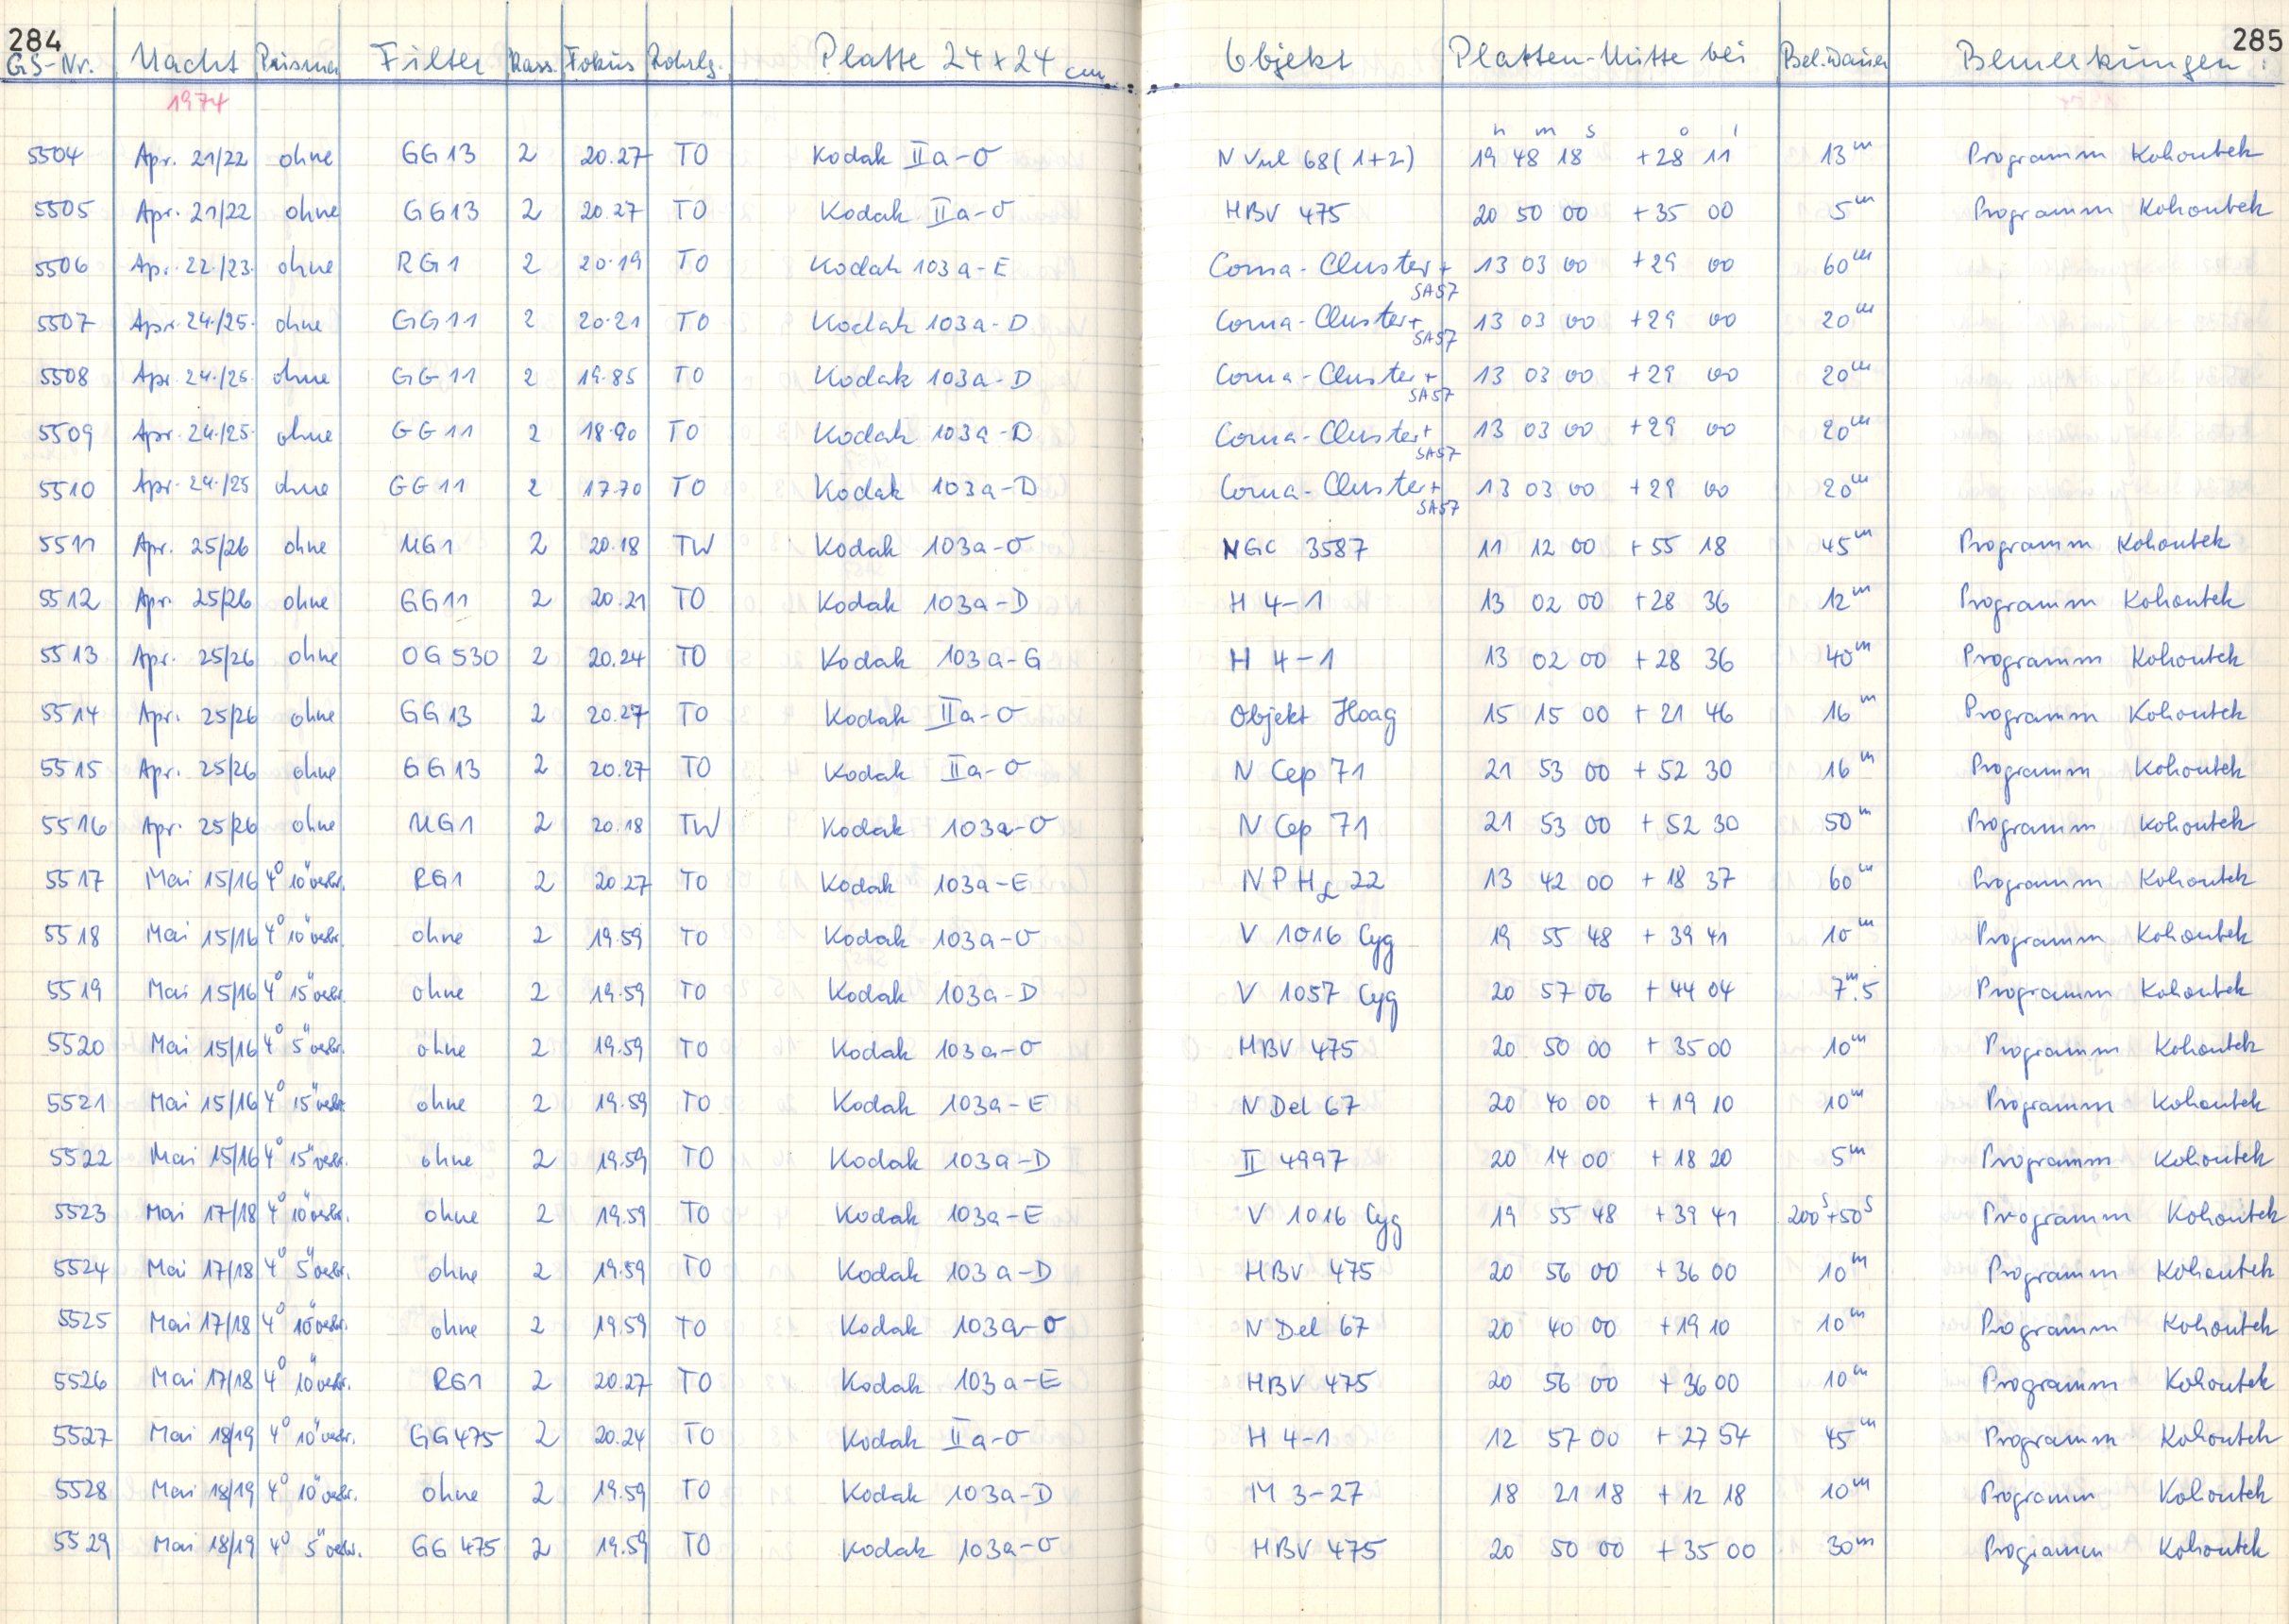 284 285
GS-Nr. Nacht Prisma Filter Kass. Fokus Rohrlg. Platte 24 x 24 cm Objekt Platten-Mitte bei Bel.dauer Bemerkungen:
1974
h m s o '
5504 Apr. 21/22 ohne GG13 2 20.27 TO Kodak IIa-O N Vul 68(1+2) 19 48 18 +28 11 13m Programm Kohoutek
5505 Apr. 21/22 ohne GG13 2 20.27 TO Kodak IIa-O HBV 475 20 50 00 +35 00 5m Programm Kohoutek
5506 Apr. 22./23. ohne RG1 2 20.19 TO Kodak 103a-E Coma-Cluster+ SA57 13 03 00 +29 00 60m
5507 Apr. 24./25. ohne GG11 2 20.21 TO Kodak 103a-D Coma-Cluster+ SA57 13 03 00 +29 00 20m
5508 Apr. 24./25. ohne GG11 2 19.85 TO Kodak 103a-D Coma-Cluster+ SA57 13 03 00 +29 00 20m
5509 Apr. 24./25. ohne GG11 2 18.90 TO Kodak 103a-D Coma-Cluster+ SA57 13 03 00 +29 00 20m
5510 Apr. 24./25 ohne GG11 2 17.70 TO Kodak 103a-D Coma-Cluster+ SA57 13 03 00 +29 00 20m
5511 Apr. 25/26 ohne UG1 2 20.18 TW Kodak 103a-O NGC 3587 11 12 00 +55 18 45m Programm Kohoutek
5512 Apr. 25/26 ohne GG11 2 20.21 TO Kodak 103a-D H 4-1 13 02 00 +28 36 12m Programm Kohoutek
5513 Apr. 25/26 ohne OG530 2 20.24 TO Kodak 103a-G H 4-1 13 02 00 +28 36 40m Programm Kohoutek
5514 Apr. 25/26 ohne GG13 2 20.27 TO Kodak IIa-O Objekt Hoag 15 15 00 +21 46 16m Programm Kohoutek
5515 Apr. 25/26 ohne GG13 2 20.27 TO Kodak IIa-O N Cep 71 21 53 00 +52 30 16m Programm Kohoutek
5516 Apr. 25/26 ohne UG1 2 20.18 TW Kodak 103a-O N Cep 71 21 53 00 +52 30 50m Programm Kohoutek
5517 Mai 15/16 4° 10"verbr. RG1 2 20.27 TO Kodak 103a-E NPHL 22 13 42 00 +18 37 60m Programm Kohoutek
5518 Mai 15/16 4° 10"verbr. ohne 2 19.59 TO Kodak 103a-O V 1016 Cyg 19 55 48 +39 41 10m Programm Kohoutek
5519 Mai 15/16 4° 15"verbr. ohne 2 19.59 TO Kodak 103a-D V 1057 Cyg 20 57 06 +44 04 7m.5 Programm Kohoutek
5520 Mai 15/16 4° 5"verbr. ohne 2 19.59 TO Kodak 103a-O HBV 475 20 50 00 +35 00 10m Programm Kohoutek
5521 Mai 15/16 4° 15"verbr. ohne 2 19.59 TO Kodak 103a-E N Del 67 20 40 00 +19 10 10m Programm Kohoutek
5522 Mai 15/16 4° 15"verbr. ohne 2 19.59 TO Kodak 103a-D II 4997 20 14 00 +18 20 5m Programm Kohoutek
5523 Mai 17/18 4° 10"verbr. ohne 2 19.59 TO Kodak 103a-E V 1016 Cyg 19 55 48 +39 41 200s+50s Programm Kohoutek
5524 Mai 17/18 4° 5"verbr. ohne 2 19.59 TO Kodak 103a-D HBV 475 20 56 00 +36 00 10m Programm Kohoutek
5525 Mai 17/18 4° 10"verbr. ohne 2 19.59 TO Kodak 103a-O N Del 67 20 40 00 +19 10 10m Programm Kohoutek
5526 Mai 17/18 4° 10"verbr. RG1 2 20.27 TO Kodak 103a-E HBV 475 20 56 00 +36 00 10m Programm Kohoutek
5527 Mai 18/19 4° 10"verbr. GG475 2 20.24 TO Kodak IIa-O H 4-1 12 57 00 +27 54 45m Programm Kohoutek
5528 Mai 18/19 4° 10"verbr. ohne 2 19.59 TO Kodak 103a-D M 3-27 18 21 18 +12 18 10m Programm Kohoutek
5529 Mai 18/19 4° 5"verbr. GG 475 2 19.59 TO Kodak 103a-O HBV 475 20 50 00 +35 00 30m Programm Kohoutek